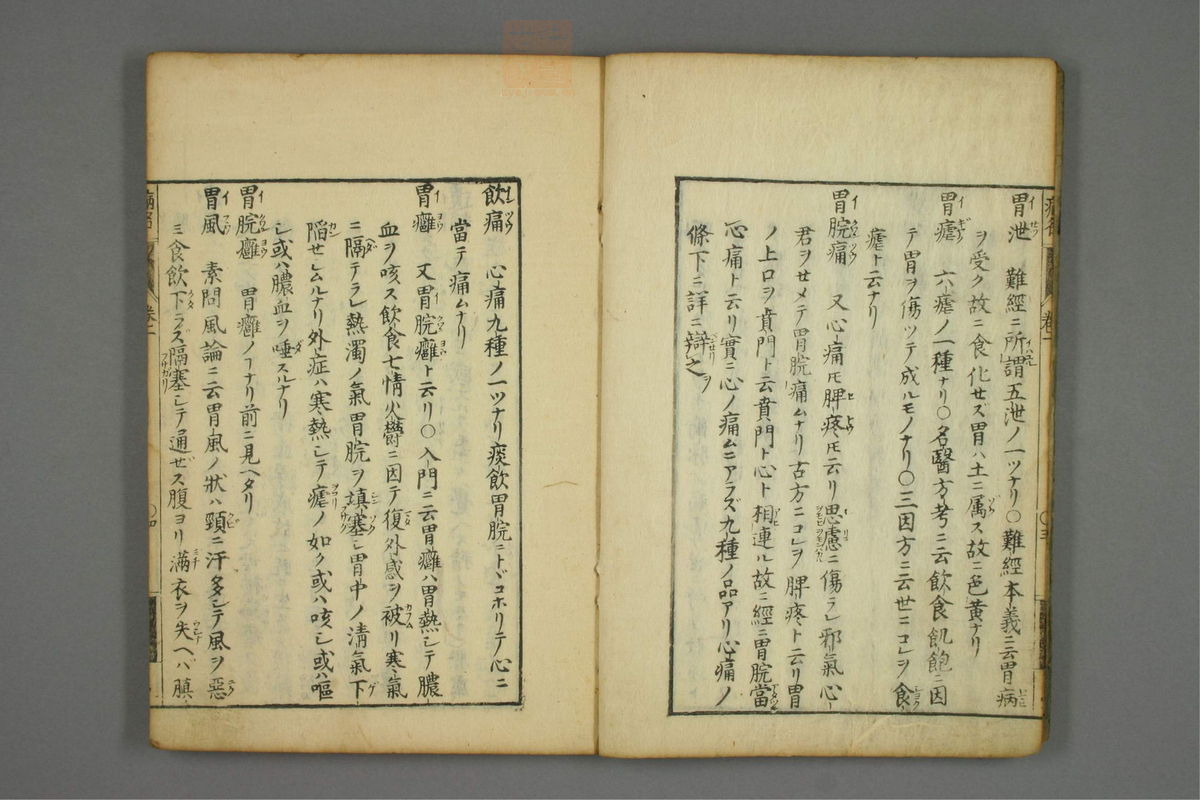 胃泄 難經ニ所謂五泄ノ一ツナリ〇難經本義ニ云胃病
ヲ受ク故ニ食化セズ胃ハ土ニ属ス故ニ色黄ナリ
胃瘧 六瘧ノ一種ナリ〇名醫方考ニ云飲食飢飽ニ因
テ胃ヲ傷ツテ成ルモノナリ〇三因方ニ云世ニコレヲ食
瘧ト云ナリ
胃脘痛 又心痛トモ脾疼トモ云リ思慮ニ傷ラレ邪氣心
君ヲセメテ胃脘痛ムナリ古方ニコレヲ脾疼ト云リ胃
ノ上口ヲ賁門ト云賁門ト心ト相連ル故ニ經ニ胃脘當
心痛ト云リ實ニ心ノ痛ムニアラズ九種ノ品アリ心痛ノ
條下ニ詳ニ辯之
飲痛 心痛九種ノ一ツナリ痰飲胃脘ニトドコホリテ心ニ
當テ痛ムナリ
胃癰 又胃脘癰ト云リ〇入門ニ云胃癰ハ胃熱シテ膿
血ヲ咳ス飲食七情火鬱ニ因テ復外感ヲ被リ寒氣
ニ隔テラレ熱濁ノ氣胃脘ヲ填塞シ胃中ノ清氣下
陥セシムルナリ外症ハ寒熱シテ瘧ノ如ク或ハ咳シ或ハ嘔
シ或ハ膿血ヲ唾スルナリ
胃脘癰 胃癰ノコナリ前ニ見ヘタリ
胃風 素問風論ニ云胃風ノ狀ハ頸ニ汗多シテ風ヲ惡
ミ食飲下ラズ隔塞シテ通ゼス腹ヨリ滿衣ヲ失ヘバ䐜